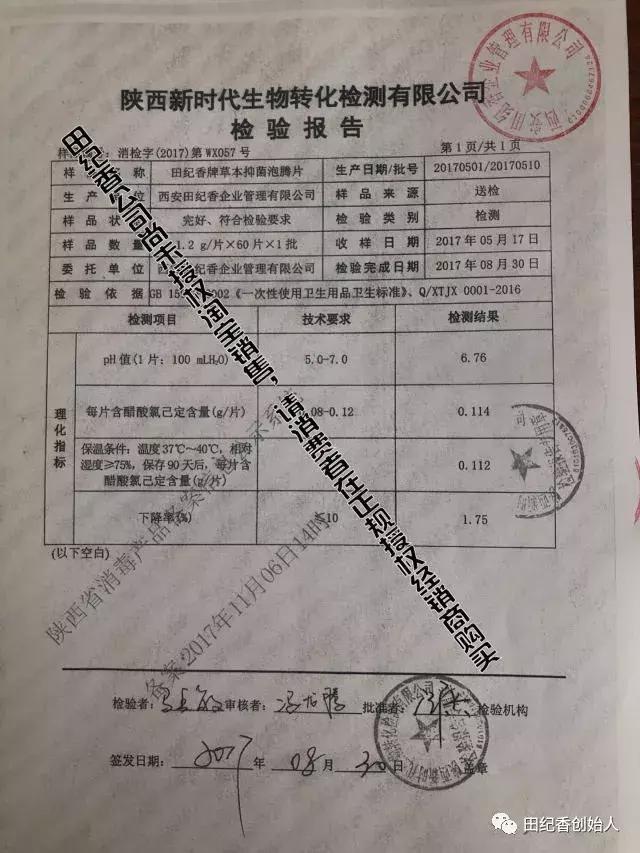 西安田纪香企业管理有限公司
陕西新时代生物转化检测有限公司
检验报告
样 消检字(2017)第WX057号 第1页/共1页
样 称 田纪香牌草本抑菌泡腾片 生产日期/批号 20170501/20170510
生产 位 西安田纪香企业管理有限公司 样品来源 送检
样品状 完好、符合检验要求 检验类别 检测
样品数量 1.2 g/片×60片×1批 收样日期 2017年05月17日
委托单位 西 田纪香企业管理有限公司 检验完成日期 2017年08月30日
检验依据 GB 15 002《一次性使用卫生用品卫生标准》、Q/XTJX 0001-2016
检测项目 技术要求 检测结果
理化指标
pH值(1片: 100 mLH₂O) 5.0-7.0 6.76
每片含醋酸氯己定含量(g/片) .08-0.12 0.114
保温条件: 温度37℃～40℃, 相对
湿度≥75%, 保存90天后, 每片含
醋酸氯己定含量(g/片) 0.112
下降率(%) 10 1.75
(以下空白)
田纪香公司尚未授权淘宝销售，请消费者在正规授权经销商购买
陕西省消毒产品备案 示系统
备案2017年11月06日14时
检验者: 审核者: 批准者: 检验机构
签发日期: 2017 年 08 月 30 日 盖章
田纪香创始人